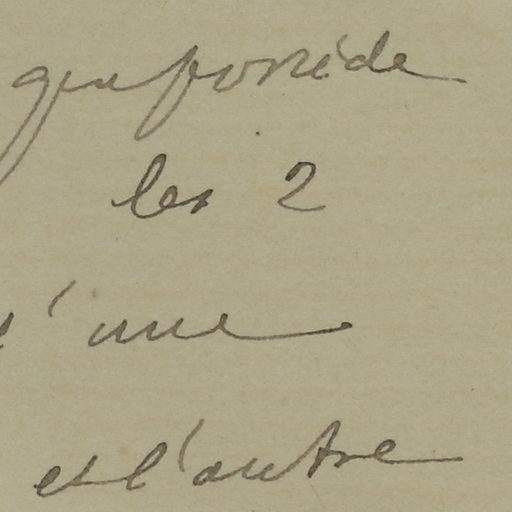 qui possède
les 2
l'une
et l'autre